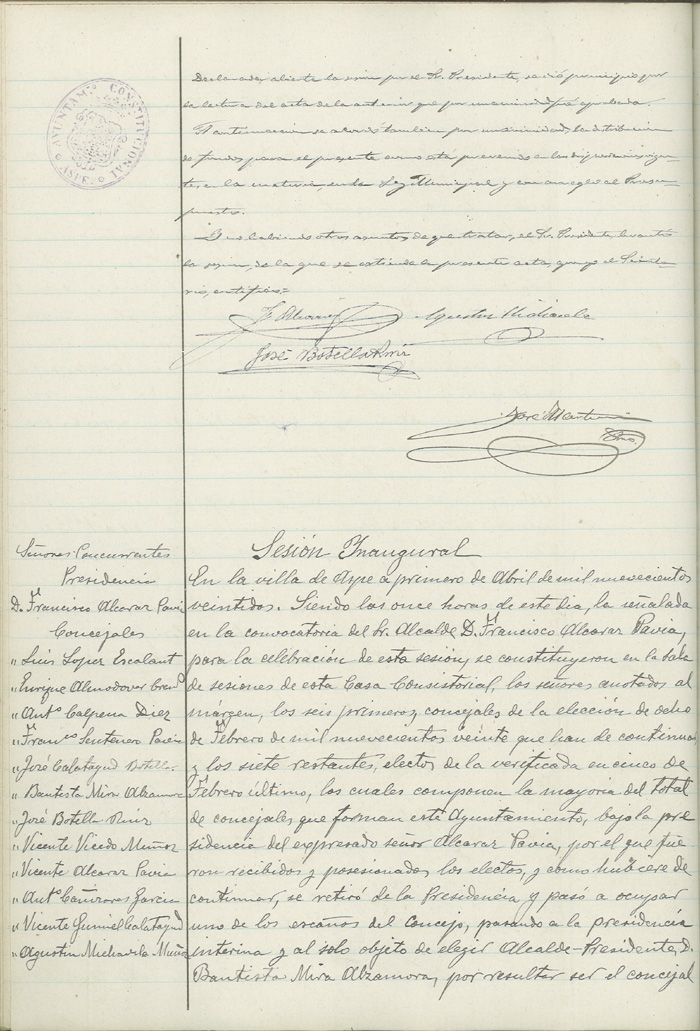 AYUNTAM.to CONSTITUCIONAL
ASPE
Declarada abierta la sesion por el Sr. Presidente, se dió principio por
la lectura del acta de la anterior que por unanimidad fué aprobada.
se acordó tambien por unanimidad, la distribucion
de fondos para el presente como está prevenido en las disposiciones vigen-
tes en la materia, en la Ley Municipal y con arreglo al Presu-
puesto.
Y no habiendo otros asuntos de que tratar, el Sr. Presidente levantó
la sesion, de la que se extiende la presente acta, que yo el Secreta-
rio, certifico=
F. Alcaraz Agustin Michavila
José Botella Ruiz
José Martin
Srio.
Señores Concurrentes
Presidencia
D. Francisco Alcaraz Pavia
Concejales
" Luis Lopez Escolant
" Enrique Almodovar
" Ant.o Calpena Diez
" Fran.co Sentener Pavia
" José Calatayud Botella
" Bautista Mira Abzamora
" José Botella Ruiz
" Vicente Vicedo Muñoz
" Vicente Alcaraz Pavia
" Ant.o Cañizares Garcia
" Vicente Gumiel Calatayud
" Agustin Michavila Muñoz
Sesión Inaugural
En la villa de Aspe á primero de Abril de mil nuevecientos
veintidos. Siendo las once horas de este dia, la señalada
en la convocatoria del Sr. Alcalde D. Francisco Alcaraz Pavia,
para la celebración de esta sesión, se constituyeron en la Sala
de sesiones de esta Casa Consistorial, los señores anotados al
márgen, los seis primeros, concejales de la elección de ocho
de Febrero de mil nuevecientos veinte que han de continuar
y los siete restantes, electos de la verificada en cinco de
Febrero último, los cuales componen la mayoria del total
de concejales que forman este Ayuntamiento, bajo la pre
sidencia del expresado señor Alcaraz Pavia, por el que fue
ron recibidos y posesionados los electos, y como hubiere de
continuar, se retiró de la Presidencia y pasó a ocupar
uno de los escaños del Concejo, pasando a la presidencia
interina y al solo objeto de elegir Alcalde-Presidente, D.
Bautista Mira Abzamora, por resultar ser el concejal